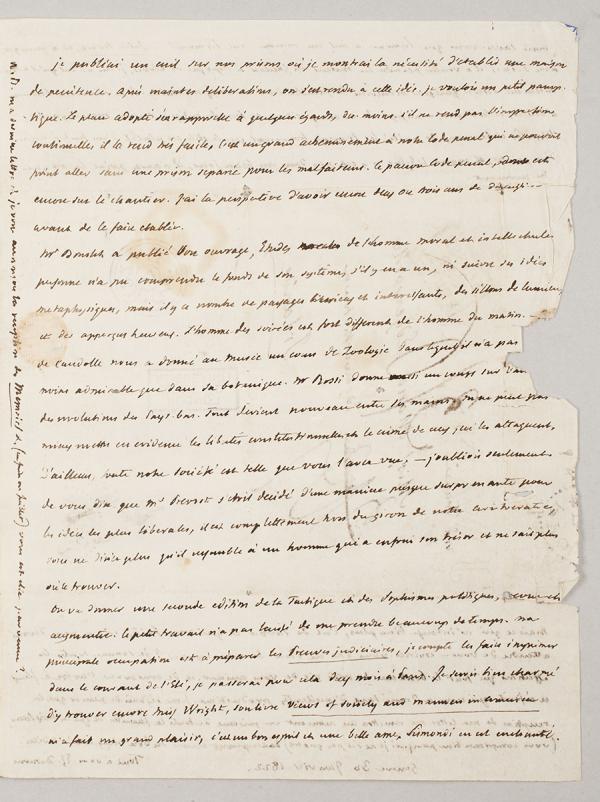 je publiai un écrit sur nos prisons où je montrai la nécessité d'établir une maison
de penitence. après maintes deliberations, on s'est rendu à cette idée. je voulois un petit panop-
tique. Le plan adopté s'en rapproche à quelques égards, du moins s'il ne rend pas l'inspection
continuelle il la rend très facile, c'est un grand acheminement à notre Code penal qui ne pouvoit
point aller sans une prison separée pour les malfaiteurs. Le pauvre Code penal, est
encore sur le chantier. J'ai la perspective d'avoir encore deux ou trois ans de
avant de le faire établir.
Mr Bonstet a publié Une ouvrage, Etudes de l'homme moral et intellectuel
personne n'a pu comprendre le fonds de son systeme s'il y en a un, ni suivre ses idées
metaphysiques, mais il y a nombre de passages et interessants, des sillons de lumiere
et des apperçus heureux. L'homme des soirées est fort different de l'homme du matin.
de Candolle nous a donné au Musée un cours de Zoologie dans lequel il n'a pas
moins admirable que dans sa botanique. Mr Rossi donne un cours sur l'an
des revolutions des Pays-bas. Tout devient nouveau entre ses mains, on ne peut pas
mieux mettre en evidence les libertés constitutionnelles et le crime de ceux qui les attaquent.
D'ailleurs, toute notre société est telle que vous l'avez vue, — j'oubliois seulement
de vous dire que Mr Prevost s'étoit decidé d'une maniere presque surprenante pour
les idées les plus liberales, il est complettement hors du giron de notre aristocratie,
vous ne diriez plus qu'il ressemble à un homme qui a enfoui son trésor et ne sait plus
où le trouver.
On va donner une seconde edition de la Tactique et des Sophismes politiques, revue et
augmentée. le petit travail n'a pas laissé de me prendre beaucoup de temps. ma
principale occupation est à préparer les Preuves judiciaires, je compte les faire imprimer
dans le courant de l'Eté, je passerai pour cela deux mois à Paris. Je serois bien charmé
d'y trouver encore Miss Wright, son livre views of society and manners in america
m'a fait un grand plaisir, c'est un bon esprit et une belle ame, Sismondi en est enchanté.
Tout à vous Et. Dumont
Geneve 30 Janvier 1822.
N.B. ma derniere lettre où je vous annonçois la reception du Memoriel &c vous est elle parvenue?